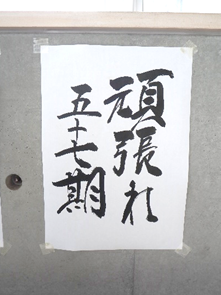 頑張れ
五十七期